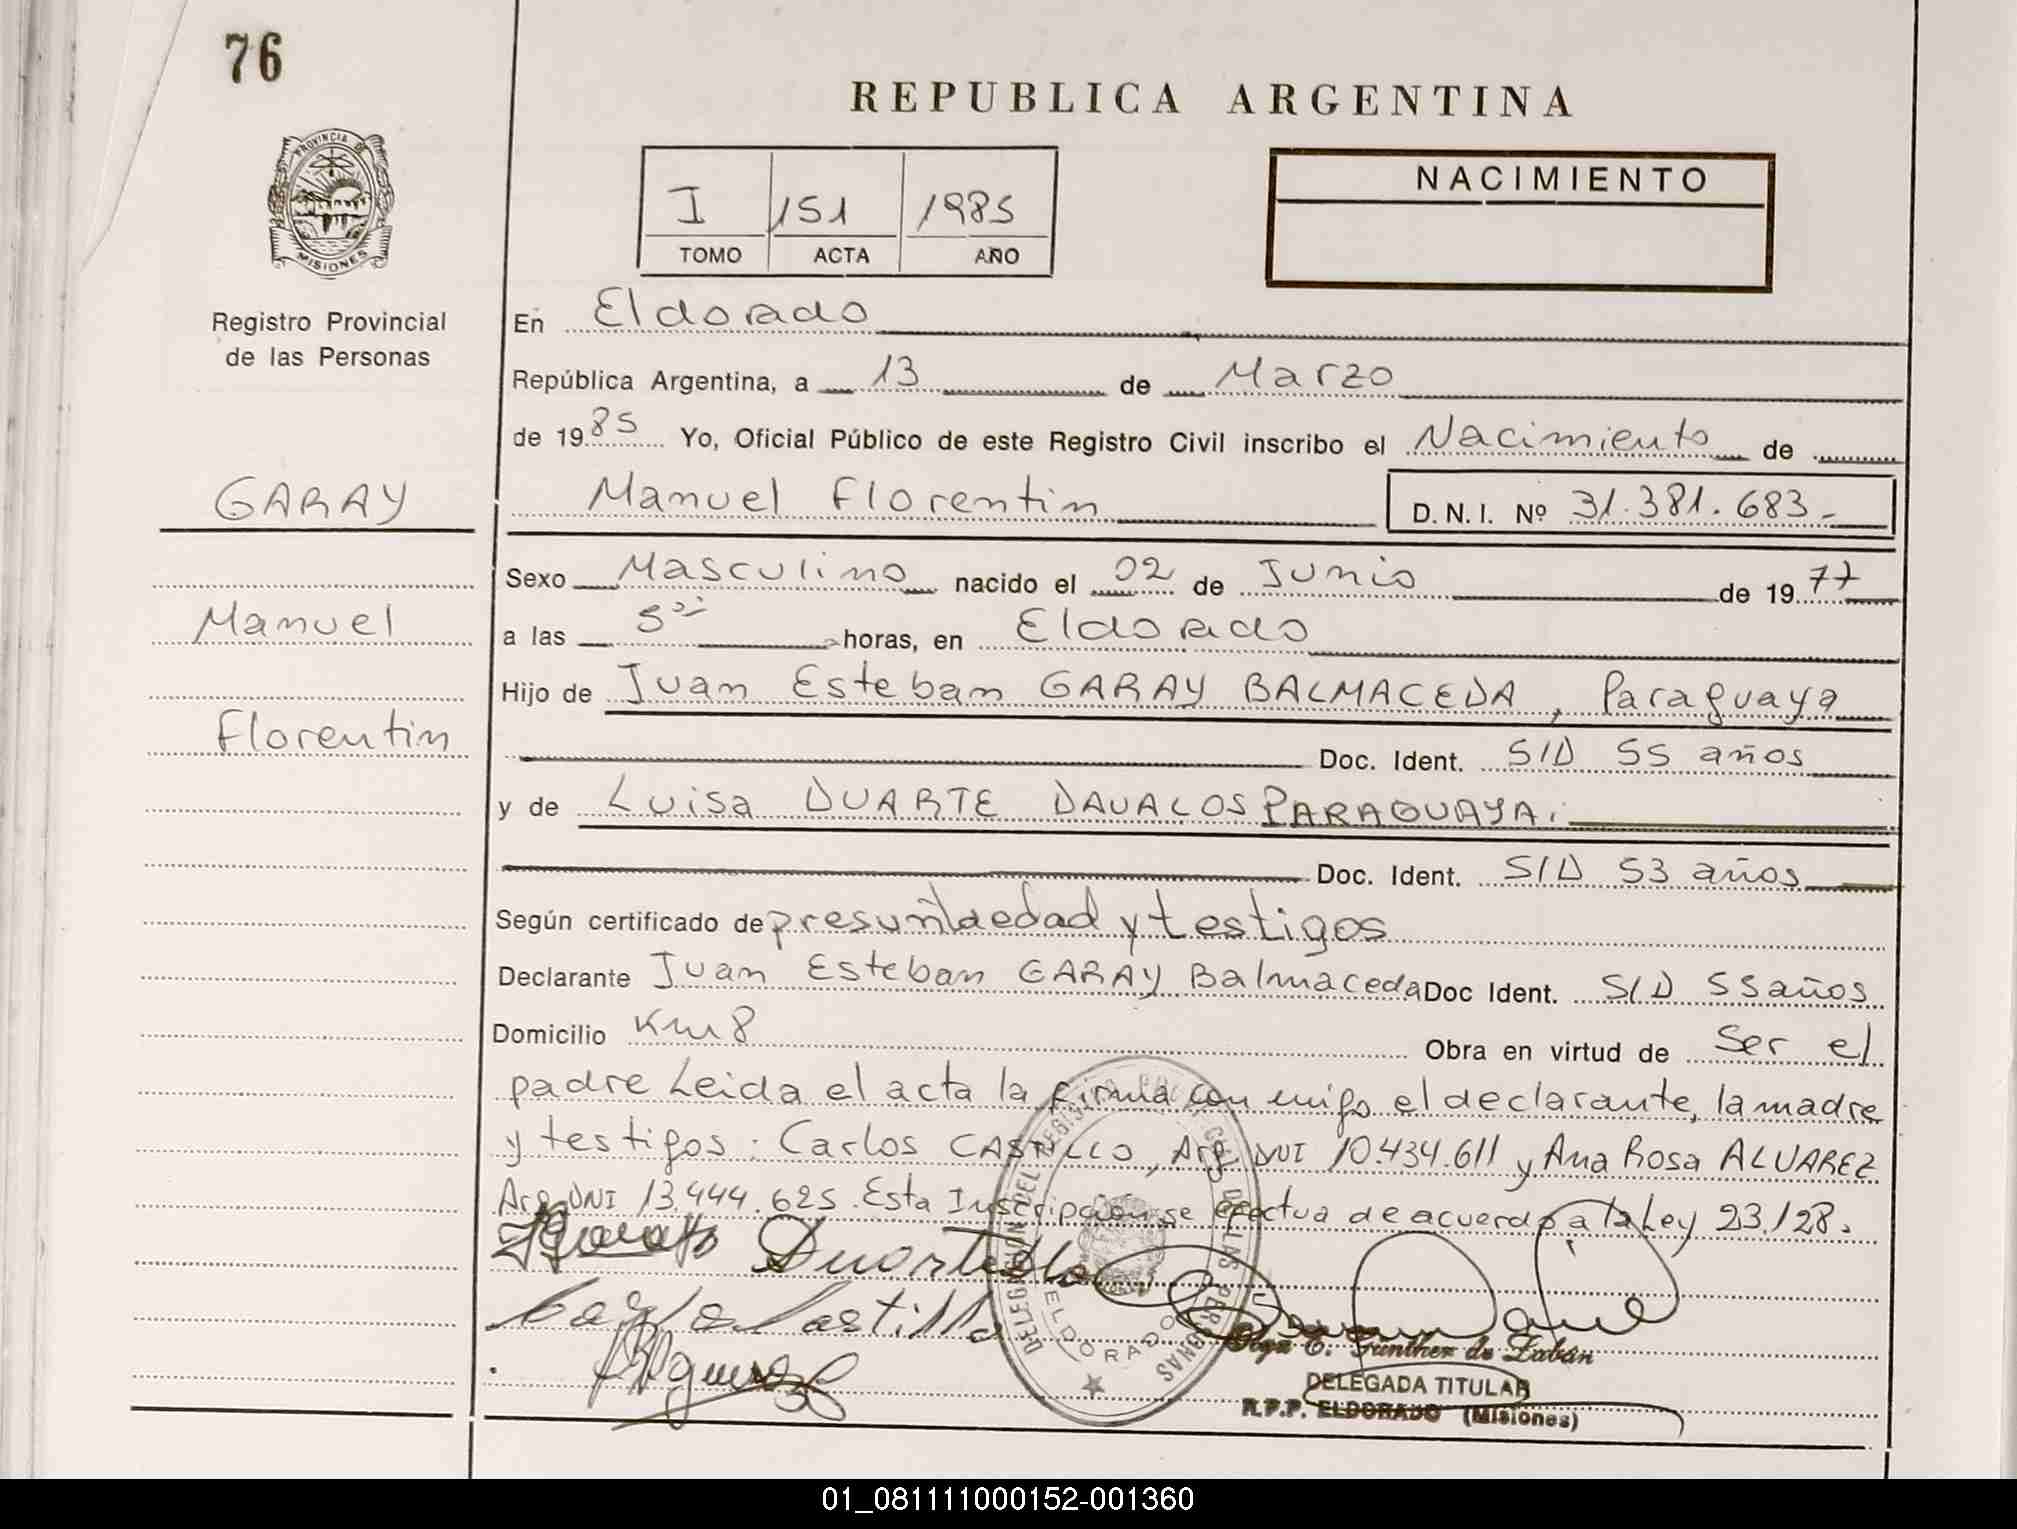 76
REPUBLICA ARGENTINA
PROVINCIA DE
MISIONES
I 151 1985
TOMO ACTA AÑO
NACIMIENTO
Registro Provincial
de las Personas
GARAY
Manuel
Florentin
En Eldorado
República Argentina, a 13 de Marzo
de 1985 Yo, Oficial Público de este Registro Civil inscribo el Nacimiento de
Manuel Florentin D.N.I. Nº 31.381.683.-
Sexo Masculino nacido el 02 de Junio de 1977
a las 5 horas, en Eldorado
Hijo de Juan Esteban GARAY BALMACEDA, Paraguaya
Doc. Ident. S/D 55 años
y de Luisa DUARTE DAVALOS PARAGUAYA.
Doc. Ident. S/D 53 años
Según certificado de edad y testigos
Declarante Juan Esteban GARAY Balmaceda Doc Ident. S/D 55 años
Domicilio Km 8 Obra en virtud de Ser el
padre Leida el acta la firma con migo el declarante, la madre
y testigos: Carlos CASTILLO, Arg DNI 10.434.611 y Ana Rosa ALVAREZ
Arg DNI 13.444.625. Esta Inscripción se efectua de acuerdo a la Ley 23.128.
DELEGACION DEL REGISTRO DE LAS PERSONAS
ELDORADO
Castillo
E. Günther de Zabán
DELEGADA TITULAR
R.P.P. ELDORADO (Misiones)
01_081111000152-001360